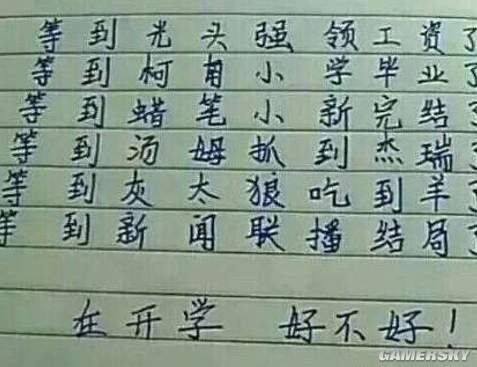 等到光头强领工资了
等到柯南小学毕业了
等到蜡笔小新完结了
等到汤姆抓到杰瑞了
等到灰太狼吃到羊了
等到新闻联播结局了
在开学 好不好!
GAMERSKY